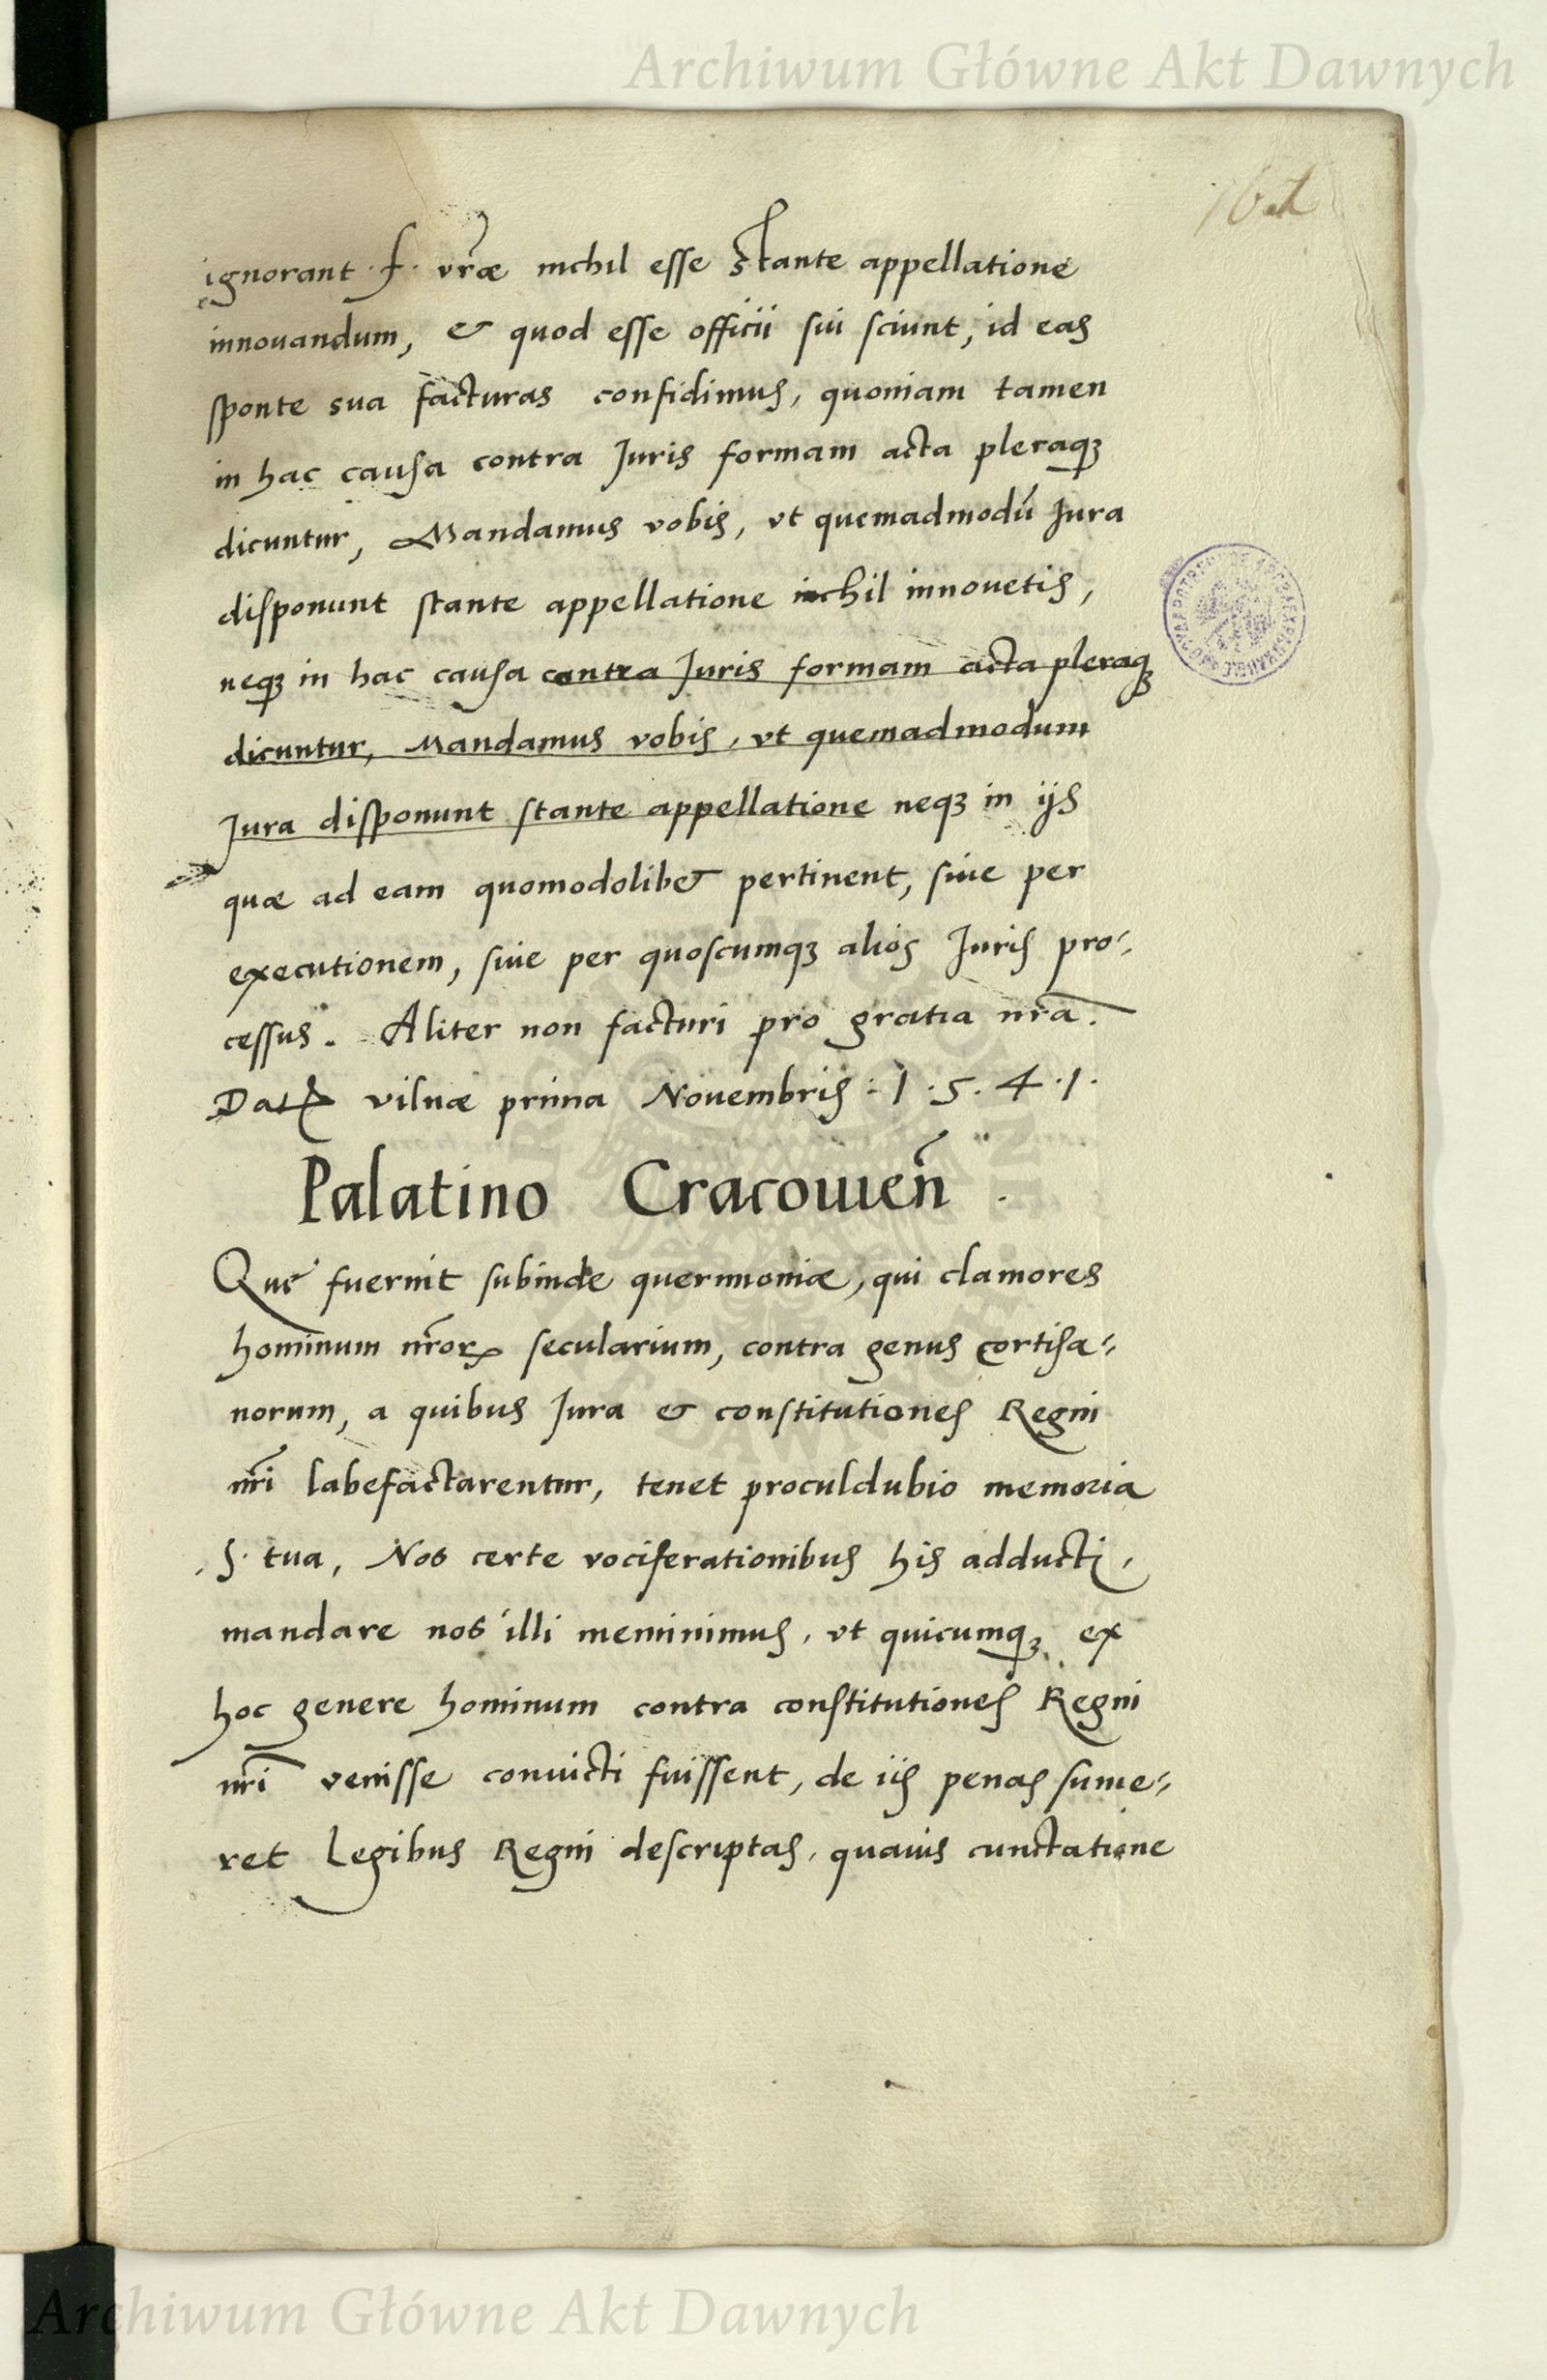 Archiwum Główne Akt Dawnych
ignorant .f. vr̃æ nichil esse stante appellatione
innouandum, & quod esse officii sui sciunt, id eas
sponte sua facturas confidimus, quoniam tamen
in hac causa contra Juris formam acta pleraqꝫ
dicuntur, Mandamus vobis, vt quemadmodũ Jura
disponunt stante appellatione nichil innouetis,
neqꝫ in hac causa contra Juris formam acta pleraqꝫ
dicuntur, Mandamus vobis, vt quemadmodum
Jura disponunt stante appellatione neqꝫ in ijs
quæ ad eam quomodolibet pertinent, siue per
executionem, siue per quoscumqꝫ alios Juris pro-
cessus. Aliter non facturi pro gratia nr̃a.
Datꝭ vilnæ prima Nouembris : 1 . 5 . 4 . 1 .
Palatino Cracouieñ .
Que fuerint subinde querimoniæ, qui clamores
hominum nr̃oꝝ secularium, contra genus cortisa-
norum, a quibus Jura & constitutiones Regni
nr̃i labefactarentur, tenet proculdubio memoria
S. tua, Nos certe vociferationibus his adducti,
mandare nos illi meminimus, vt quicumqꝫ ex
hoc genere hominum contra constitutiones Regni
nr̃i venisse conuicti fuissent, de iis penas sume-
ret Legibus Regni descriptas, quauis cunctatione
Archiwum Główne Akt Dawnych